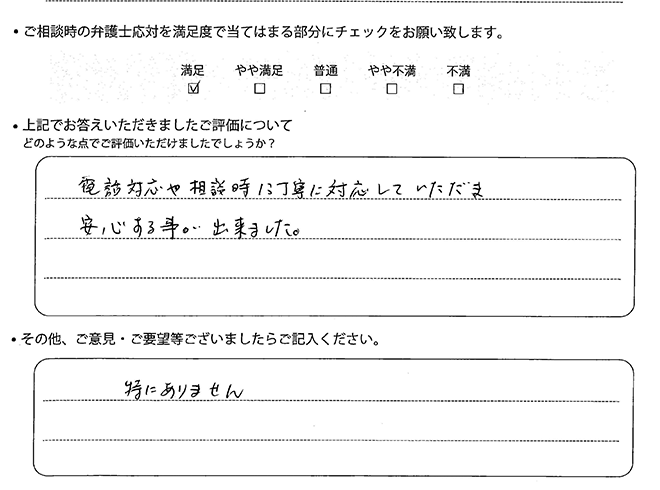 ・ご相談時の弁護士応対を満足度で当てはまる部分にチェックをお願い致します。
満足 やや満足 普通 やや不満 不満
☑ □ □ □ □
・上記でお答えいただきましたご評価について
どのような点でご評価いただけましたでしょうか？
電話対応や相談時に丁寧に対応していただき
安心する事が出来ました。
・その他、ご意見・ご要望等ございましたらご記入ください。
特にありません